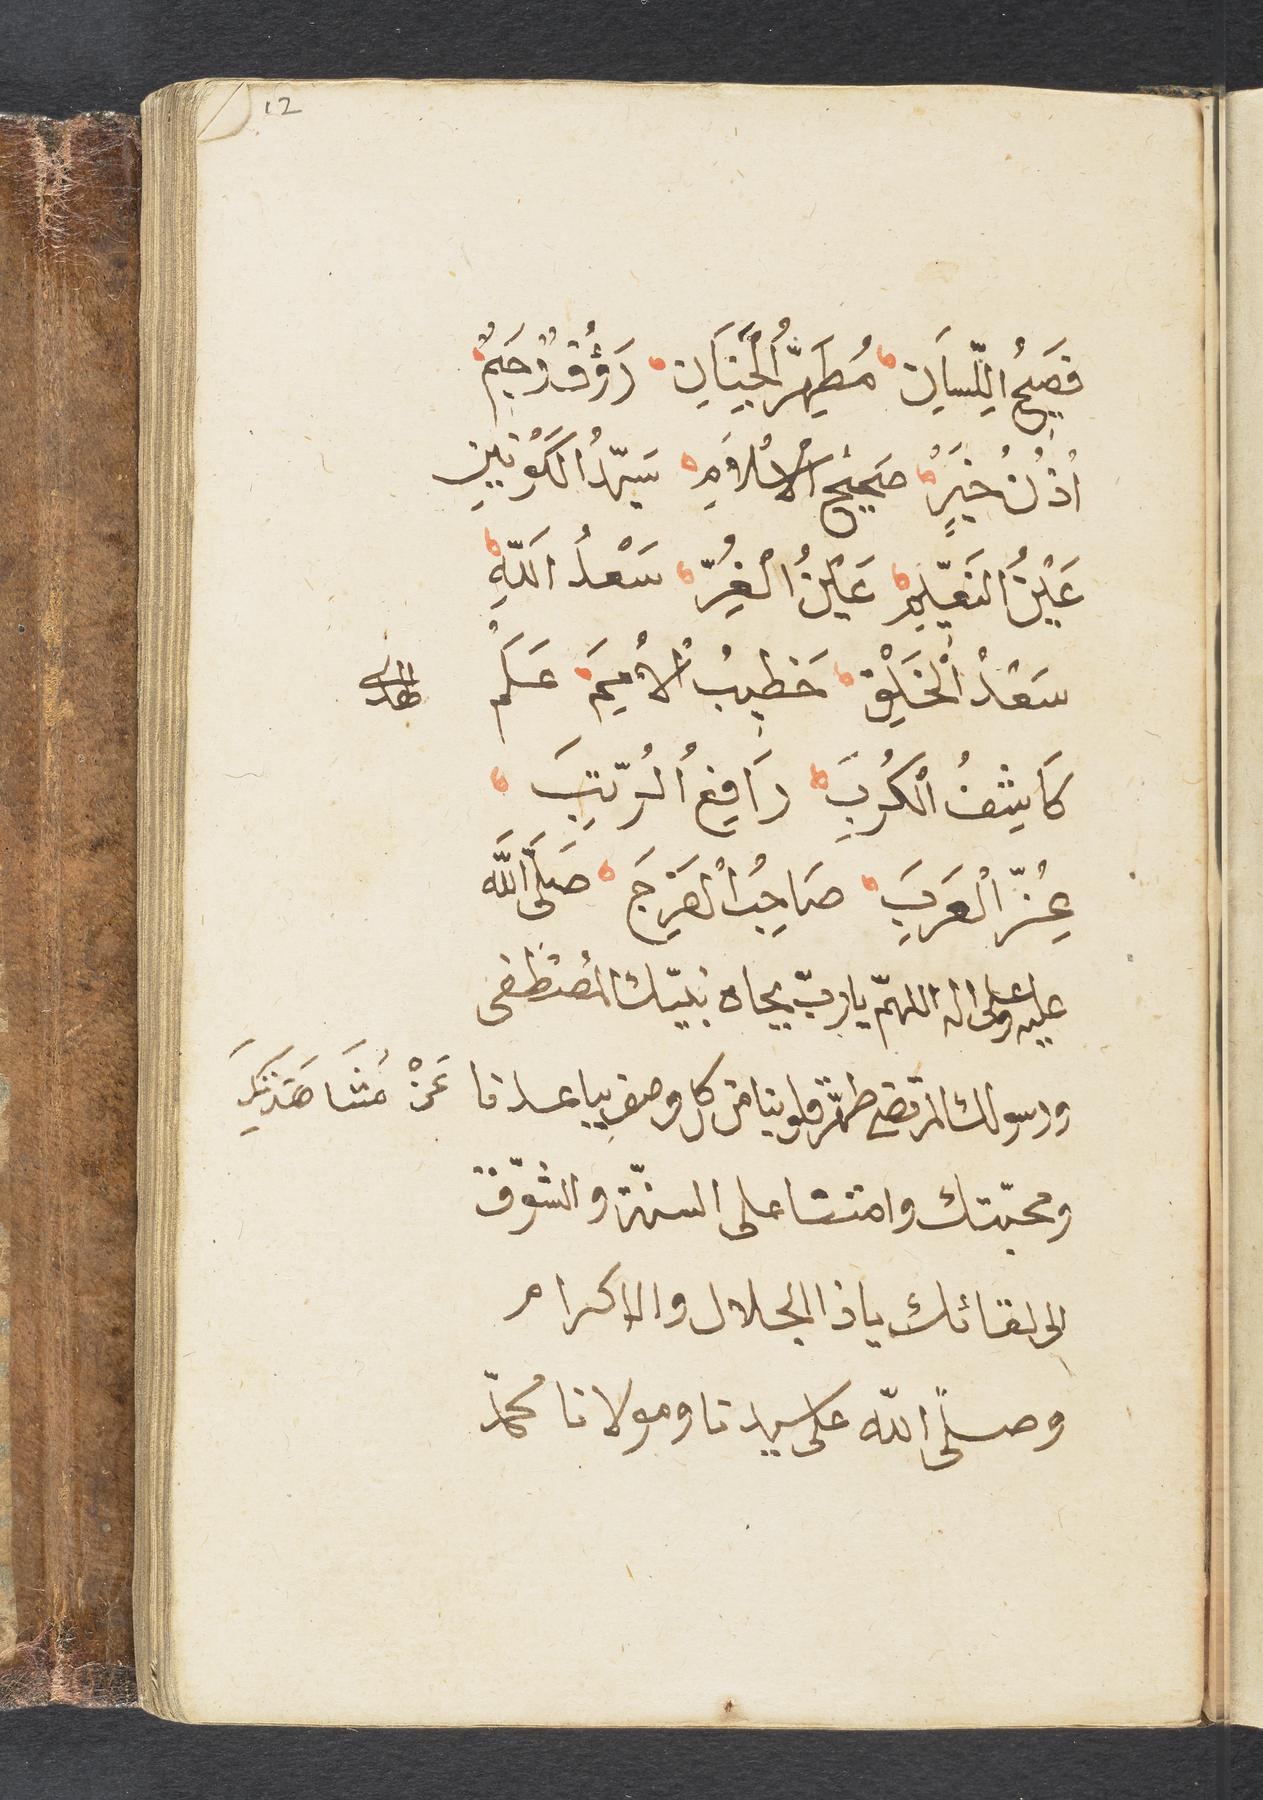 12
فَصِيحُ اللِّسَانِ مُطَهَّرُ الْجَنَانِ رَؤُفٌ رَحِيمٌ
اُذُنُ خَيْرٍ صَحِيحُ الْاِسْلَامِ سَيِّدُ الْكَوْنَيْنِ
عَيْنُ النَّعِيمِ عَيْنُ الْغُرِّ سَعْدُ اللّٰهِ
سَعْدُ الْخَلْقِ خَطِيبُ الْاُمَمِ عَلَمُ الهدى
كَاشِفُ الْكُرَبِ رَافِعُ الرُّتَبِ
عِزُّ الْعَرَبِ صَاحِبُ الْفَرَجِ صَلَّى اللّٰه
عليه وعلى اله اللهمّ يا ربّ بجاه نبيّك المصطفى
ورسولك المرتضى طهّر قلوبنا من كل وصف يباعدنا عَنْ مُشَاهَدَتِكَ
ومحبّتك وامتنا على السنّة والشّوق
الى لقائك يا ذا الجلال والاكرام
وصلّى اللّه على سيدنا ومولانا محمّد